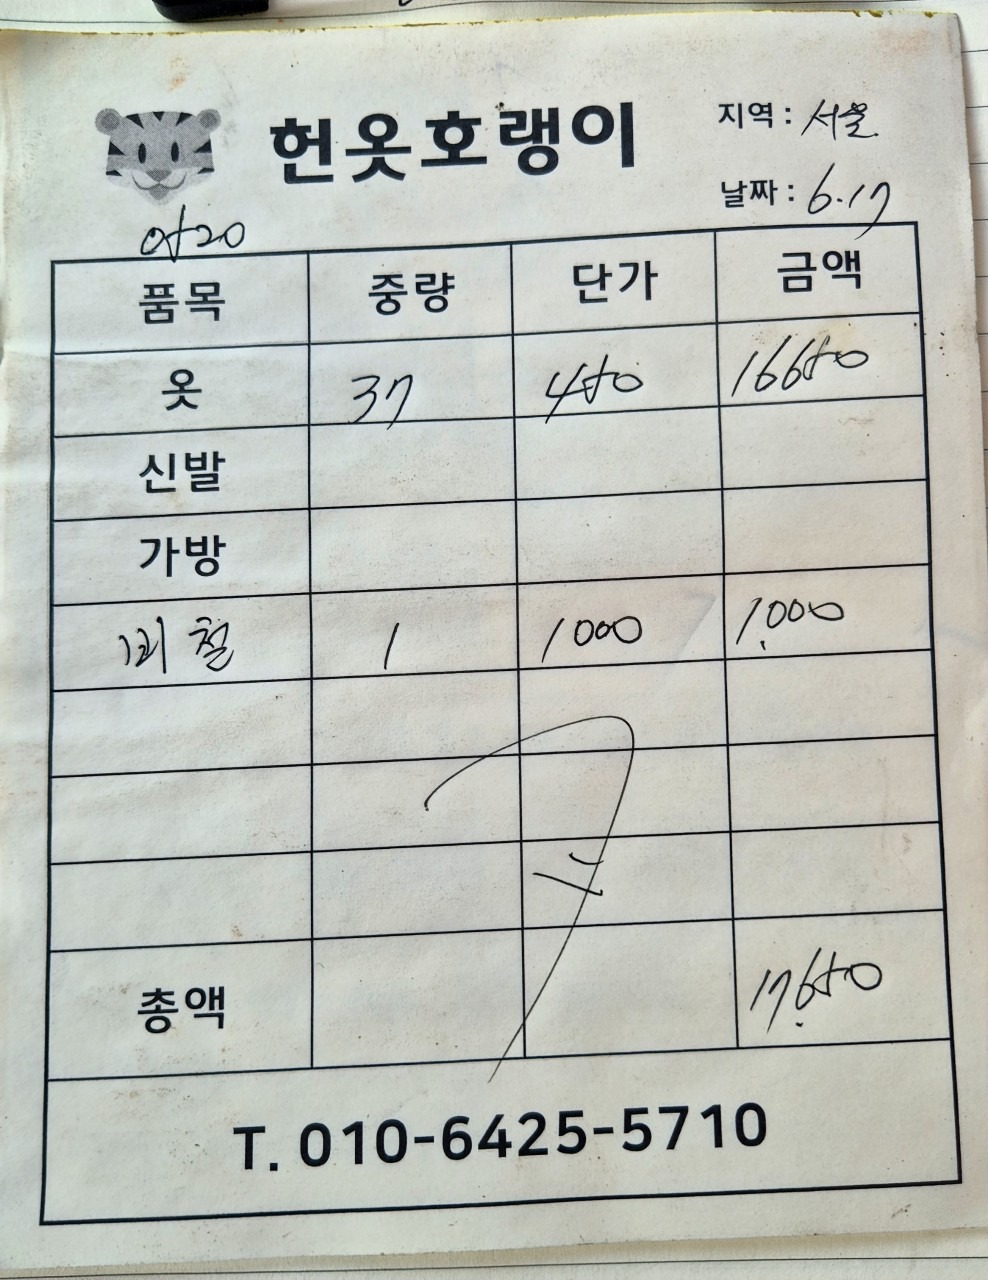 헌옷호랭이
지역 : 서울
날짜 : 6.17
품목 중량 단가 금액
옷 37 450 16650
신발
가방
비철 1 1000 1,000
총액 17,650
T. 010-6425-5710